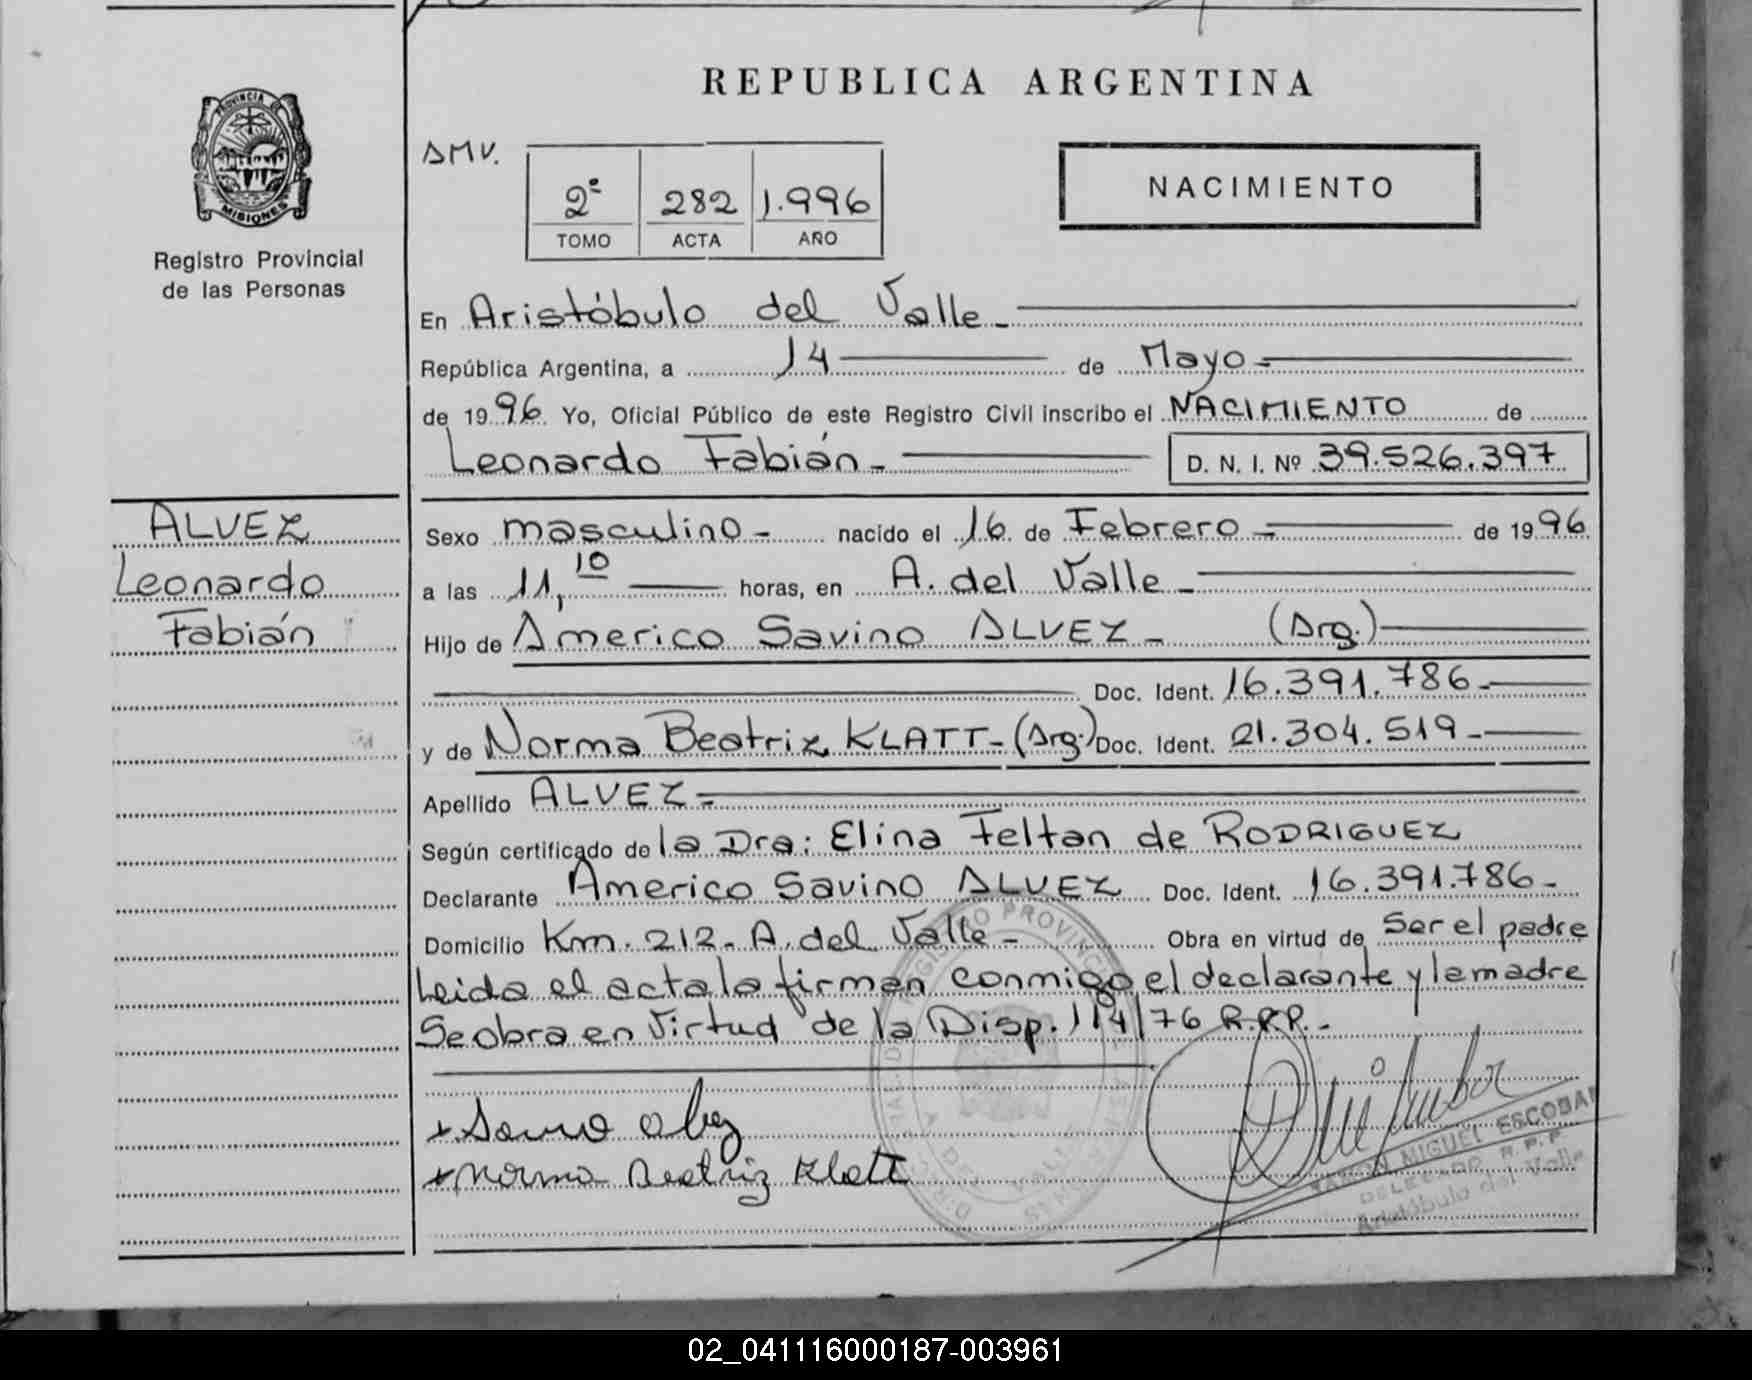 REPUBLICA ARGENTINA
PROVINCIA DE
MISIONES
Registro Provincial
de las Personas
AMV.
2º 282 1.996
TOMO ACTA AÑO
NACIMIENTO
En Aristóbulo del Valle-
República Argentina, a 14 de Mayo
de 1996 Yo, Oficial Público de este Registro Civil inscribo el NACIMIENTO de
Leonardo Fabián- D. N. I. Nº 39.526.397
ALVEZ
Leonardo
Fabián
Sexo masculino- nacido el 16 de Febrero- de 1996
a las 11,10 horas, en A. del Valle-
Hijo de Americo Savino ALVEZ- (Arg.)
Doc. Ident. 16.391.786-
y de Norma Beatriz KLATT- (Arg.) Doc. Ident. 21.304.519-
Apellido ALVEZ-
Según certificado de la Dra: Elina Feltan de RODRIGUEZ
Declarante Americo Savino ALVEZ Doc. Ident. 16.391.786-
Domicilio Km. 212- A. del Valle- Obra en virtud de Ser el padre
Leida el acta la firman conmigo el declarante y la madre
Se obra en Virtud de la Disp. 114/76 R.P.P.-
+ Savino Alvez
+ Norma Beatriz Klatt
RAMON MIGUEL ESCOBAR
DELEGADO R.P.P.
Aristóbulo del Valle
02_041116000187-003961